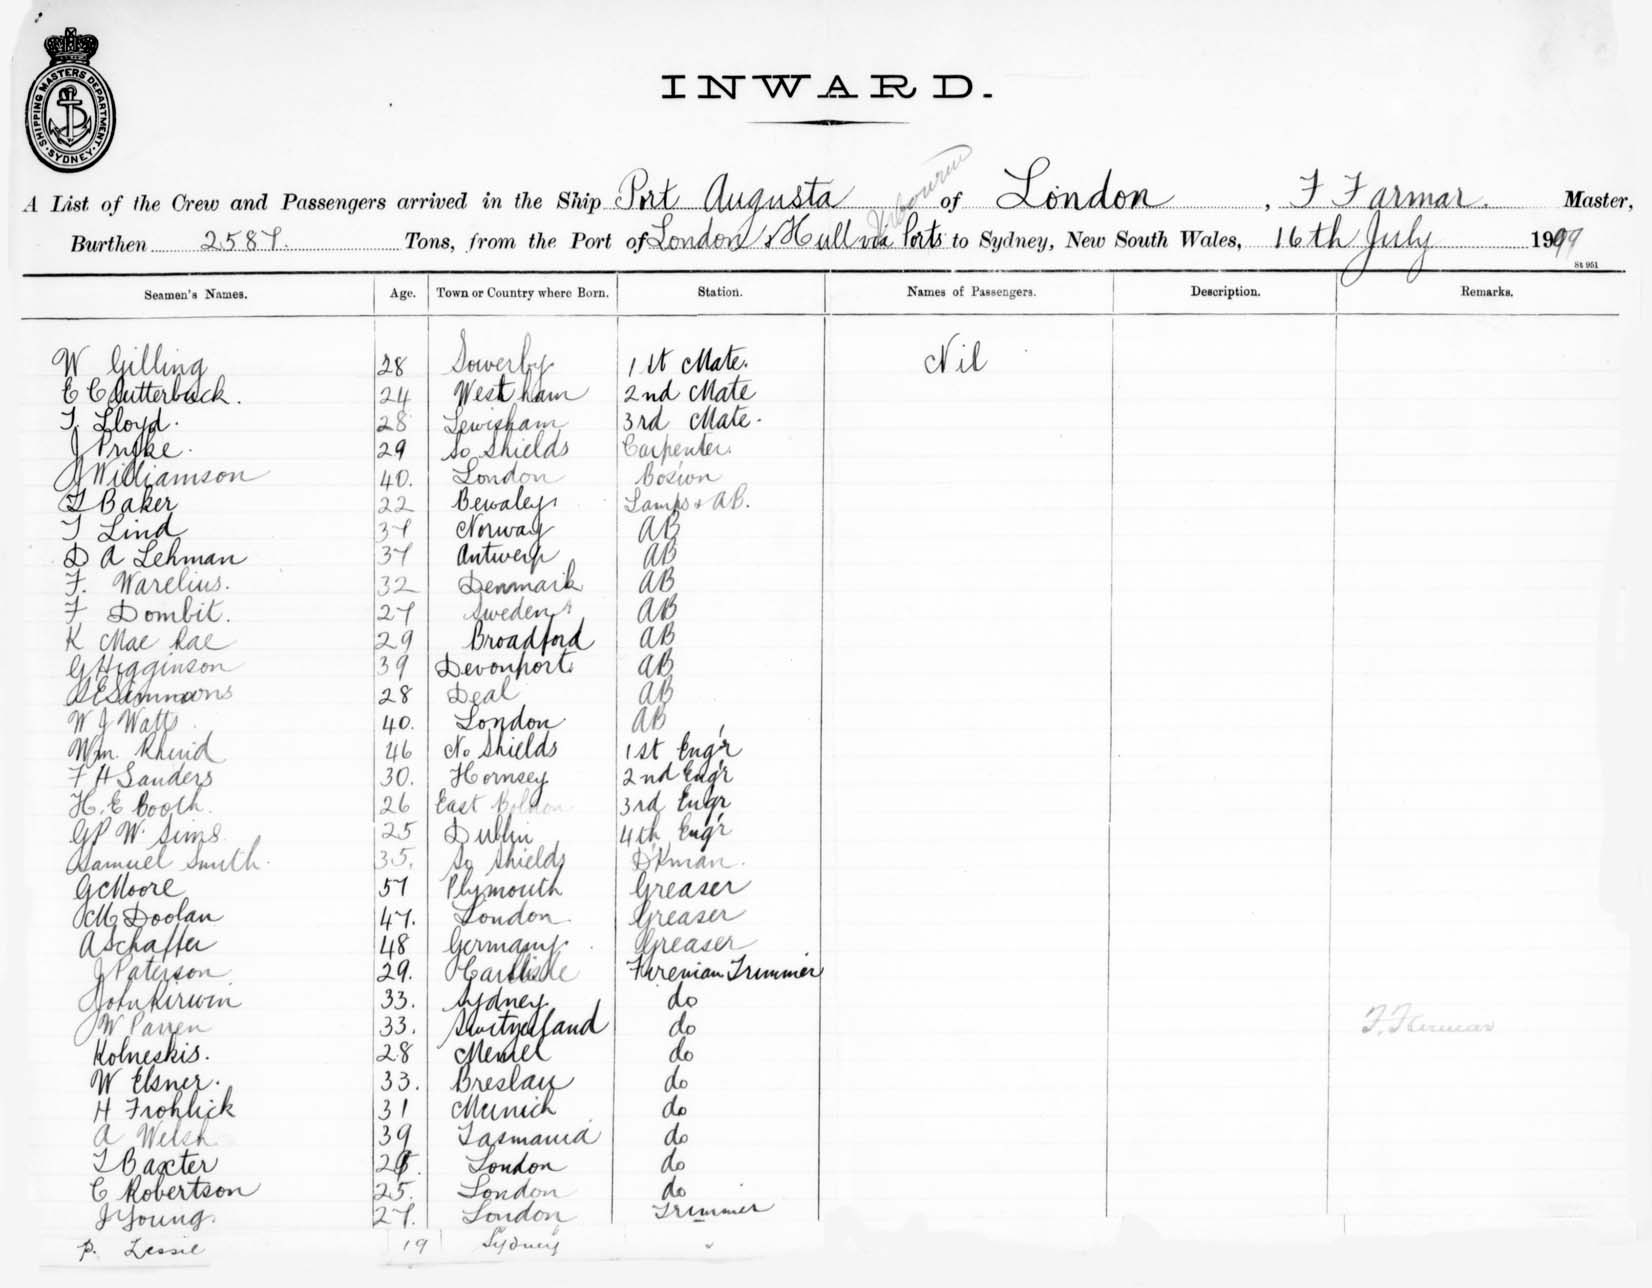 SHIPPING MASTERS DEPARTMENT. SYDNEY
INWARD.
A List of the Crew and Passengers arrived in the Ship Port Augusta of London, F Farmar. Master,
Burthen 2587. Tons, from the Port of London & Hull via Ports to Sydney, New South Wales, 16th July 1909
St 951
Seamen's Names. Age. Town or Country where Born. Station. Names of Passengers. Description. Remarks.
W Gilling 28 Sowerby 1st Mate. Nil
E Clutterbuck. 24 West ham 2nd Mate
T. Lloyd. 28 Lewisham 3rd Mate.
J Pryke. 29 So Shields Carpenter
J Williamson 40. London Bos'wn
T Baker 22 Bewdley Lamps & AB.
T Lind 37 Norway AB
D A Lehman 37 Antwerp AB
F. Warelius. 32 Denmark AB
F Dombit. 27 Sweden AB
K Mac Rae 29 Broadford AB
G Higginson 39 Devonport AB
Simmons 28 Deal AB
W J Watts 40. London AB
Wm. 46 No Shields 1st Eng'r
F H Sanders 30. Hornsey 2nd Eng'r
H. E Booth. 26 East 3rd Engr
G P W. Sims 25 Dublin 4th Eng'r
Samuel Smith. 35. So Shields D'kman.
G Moore 57 Plymouth Greaser
M Doolan 47. London. Greaser
A Schaffer 48 Germany. Greaser
J Paterson 29. Carlisle Fireman Trimmer
John Kirwin 33. Sydney do
W Parren 33. Switzerland do
Kolneskis. 28 Memel do
W Elsner. 33. Breslau do
H Frohlick 31 Munich do
A Welsh 39 Tasmania do
T Baxter London do
C Robertson 25. London do
J Young. 27. London Trimmer
P. Lessie 19 Sydney